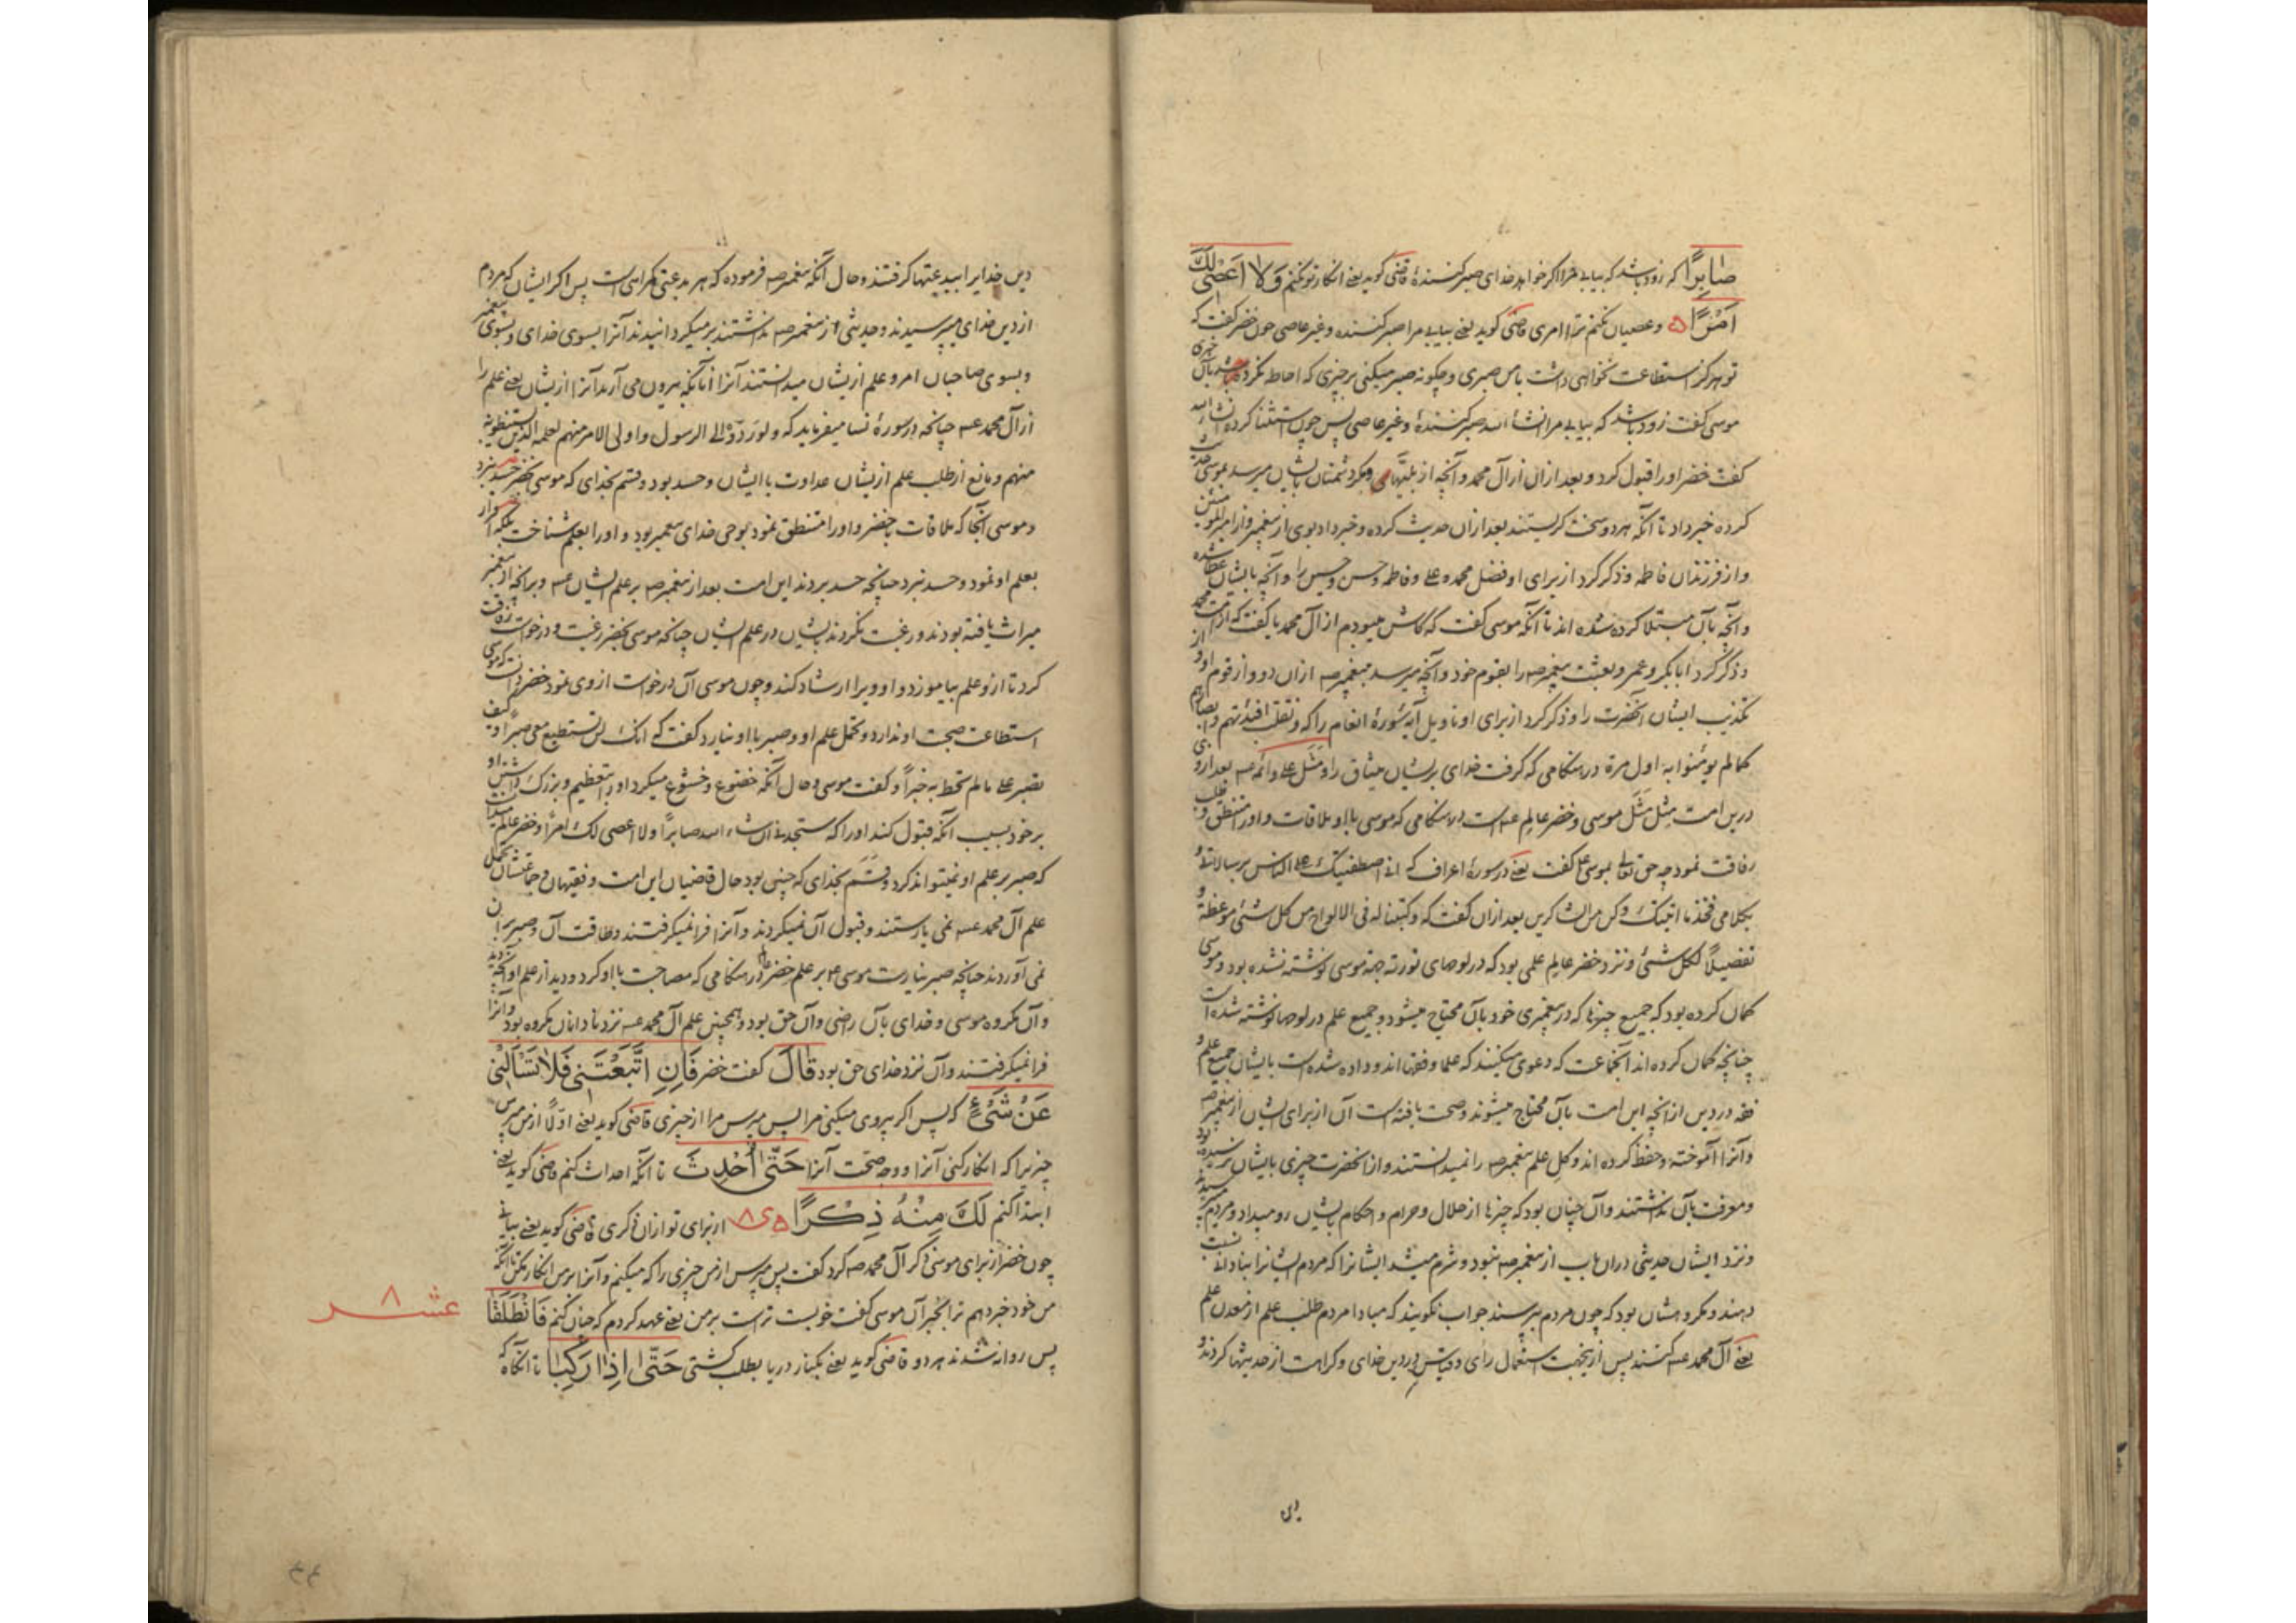 صَابِرًا که زود باشد که بیابی مرا اگر خواهد خدای صبر کننده قاضی گوید یعنی انکار تو نکنم وَلا اَعْصی لَکَ
اَمْرًا ه و عصیان نکنم ترا امری قاضی گوید یعنی بیابی مرا صبر کننده و غیر عاصی چون خضر گفت که
تو هرگز استطاعت نخواهی داشت با من صبری و چکونه صبر میکنی بر چیزی که احاطه نکرده بآن خبری
موسی گفت زود باشد که بیابی مرا انشاء الله صبر کننده و غیر عاصی پس چون استثنا کرد
گفت خضر او را قبول کرد و بعد ازان از آل محمد و آنچه از بلیتها دشمنان بایشان میرسد بموسی حدیث
کرده خبر داد تا آنکه هر دو سخت گریستند بعد ازان حدیث کرده و خبر داد بوی از پیغمبر و از امیر المؤمنین
و از فرزندان فاطمه و ذکر کرد از برای او فضل محمد و علی و فاطمه و حسن و حسین را و آنچه بایشان عطا شده
و آنچه بآن مبتلا کرده شده اند تا آنکه موسی گفت که کاش میبودم از آل محمد یا گفت که از امت محمد
و ذکر کرد ابابکر و عمر و بعثت پیغمبر صه را بقوم خود و آنچه میرسد بپیغمبر صه ازان دو و از قوم او و از
تکذیب ایشان آنحضرت را و ذکر کرد از برای او تاویل آیه سورهٔ انعام را که و نقلب افئدتهم و ابصارهم
کما لم یؤمنوا به اول مرة در هنگامی که گرفت خدای بر ایشان میثاق را و مَثَل علی و ائمه عه بعد از وی
درین امت مِثل مَثَل موسی و خضر عالم عه است در هنگامی که موسی با او ملاقات و او را مستنطق و طلب
رفاقت نمود چه حق تعالی بموسی گفت یعنی در سورهٔ اعراف که انی اصطفیتک علی الناس برسالاتی و
بکلامی فخذ ما اتیتک و کن من الشاکرین بعد ازان گفت که و کتبنا له فی الالواح من کل شئ موعظة و
تفصیلاً لکل شئ و نزد خضر عالم علمی بود که در لوحهای توریة جهة موسی نوشته نشده بود و موسی
گمان کرده بود که جمیع چیزها که در پیغمبری خود بآن محتاج میشود و جمیع علم در لوحها نوشته شده است
چنانچه گمان کرده اند آنجماعت که دعوی میکنند که علما و فقها اند و داده شده است بایشان جمیع علم و
فقه در دین از آنچه این امت بآن محتاج میشوند و صحت یافته است آن از برای ایشان از پیغمبر صه
و آنرا آموخته و حفظ کرده اند و کل علم پیغمبر صه را نمیدانستند و از آنحضرت چیزی بایشان نرسیده بود
و معرفت بآن نداشتند و آن چنان بود که چیزها از حلال و حرام و احکام بایشان رو میداد و مردم میپرسیدند
و نزد ایشان حدیثی دران باب از پیغمبر صه نبود و شرم میشد ایشانرا که مردم ایشانرا بنادانی نسبت
دهند و مکروهشان بود که چون مردم بپرسند جواب نگویند که مبادا مردم طلب علم از معدن علم
یعنی آل محمد عه کنند پس ازینجهت استعمال رای و قیاس در دین خدای و کراهت از حدیثها کردند و
دین
دین خدایرا ببدعتها گرفتند و حال آنکه پیغمبر صه فرموده که هر بدعتی گمراهی است پس اگر ایشان که مردم
از دین خدای میپرسیدند و حدیثی از پیغمبر صه نداشتند بر میگردانیدند آنرا بسوی خدای و بسوی پیغمبر
و بسوی صاحبان امر و علم ازیشان میدانستند آنرا آنانکه بیرون می آرند آنرا ازیشان یعنی علم را
از آل محمد عه چنانچه در سورهٔ نسا میفرماید که و لو ردوه الی الرسول و اولی الامر منهم لعلمه الذین یستنبطونه
منهم و مانع از طلب علم ازیشان عداوت با ایشان و حسد بود و قسم بخدای که موسی بخضر حسد نبرد
و موسی آنجا که ملاقات بخضر و او را مستنطق نمود بوحی خدای پیغمبر بود و او را بعلم شناخت بلکه اقرار
بعلم او نمود و حسد نبرد چنانچه حسد بردند این امت بعد از پیغمبر صه بر علم ایشان عه و بر آنچه از پیغمبر
میراث یافته بودند و رغبت نکردند بایشان در علم ایشان چنانچه موسی بخضر رغبت و درخواست رفاقت
کرد تا ازو علم بیاموزد و او ویرا ارشاد کند و چون موسی آن درخواست از وی نمود خضر دانست که موسی
استطاعت صحبت او ندارد و تحمل علم او و صبر با او نیارد گفت که انک لن تستطیع معی صبرًا و کیف
تصبر علی ما لم تحط به خبراً و گفت موسی و حال آنکه خضوع و خشوع میکرد او را بتعظیم و بزرگ داشتن او
بر خود بسبب آنکه قبول کند او را که ستجدنی ان شاء الله صابراً و لا اعصی لک امرًا و خضر عالم میدانست
که صبر بر علم او نمیتواند کرد و قسم بخدای که چنین بود حال قاضیان این امت و فقیهان و جماعتشان تحمل
علم آل محمد عه نمی یارستند و قبول آن نمیکردند و آنرا فرا نمیگرفتند و طاقت آن و صبر بر آن
نمی آوردند چنانچه صبر نیارست موسی بر علم خضر در هنگامی که مصاحبت با او کرد و دید از علم او آنچه دید
و آن مکروه موسی و خدای بآن راضی و آن حق بود و همچنین علم آل محمد عه نزد نادانان مکروه بود و آنرا
فرا نمیگرفتند و آن نزد خدای حق بود قالَ گفت خضر فَاِنِ اتَّبَعْتَنی فَلا تَسْأَلْنی
عَنْ شَیْءٍ که پس اگر پیروی میکنی مرا پس مپرس مرا از چیزی قاضی گوید یعنی اولاً از من مپرس
چیزیرا که انکار کنی آنرا و وجه صحت آنرا حَتّیٰ اُحْدِثَ تا آنکه احداث کنم قاضی گوید یعنی
ابتدا کنم لَکَ مِنْهُ ذِکْرًا ه ی ۸ از برای تو ازان ذکری قاضی گوید یعنی بیانی
چون خضر از برای موسی ذکر آل محمد صه کرد گفت پس مپرس از من چیزی را که میکنم و آنرا بر من انکار مکن تا آنکه
من خود خبر دهم ترا بخبر آن موسی گفت خوبست تراست بر من یعنی عهد کردم که چنان کنم فَانْطَلَقا
عشر ۸
پس روانه شدند هر دو قاضی گوید یعنی بکنار دریا بطلب کشتی حَتّیٰ اِذا رَکِبا تا آنگاه که